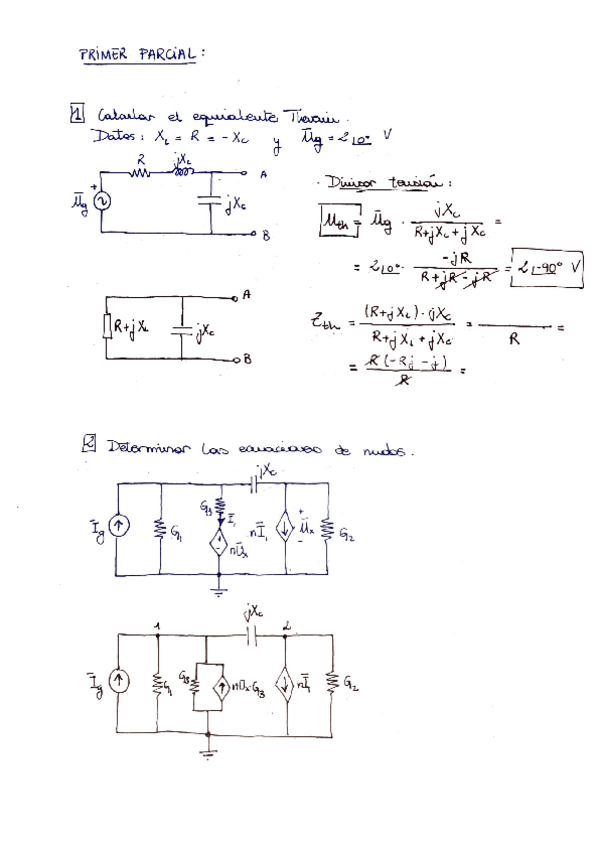 PRIMER PARCIAL:
1 Calcular el equivalente Thevenin.
Datos: X_L = R = -X_C y Ūg = 2∠0° V
R jX_L A
Ūg + jX_C
B
· Divisor tensión:
U_th = Ūg · jX_C / (R+jX_L+jX_C) =
= 2∠0° · -jR / (R+jR-jR) = 2∠-90° V
A
R+jX_L jX_C
B
Z_th = (R+jX_L)·jX_C / (R+jX_L+jX_C) = / R =
= R(-Rj-j) / R =
2 Determinar las ecuaciones de nudos.
jX_C
Īg G1 G3 Ī1 nŪx nĪ1 + Ūx - G2
jX_C
1 2
Īg G1 G3 nŪx·G3 nĪ1 G2